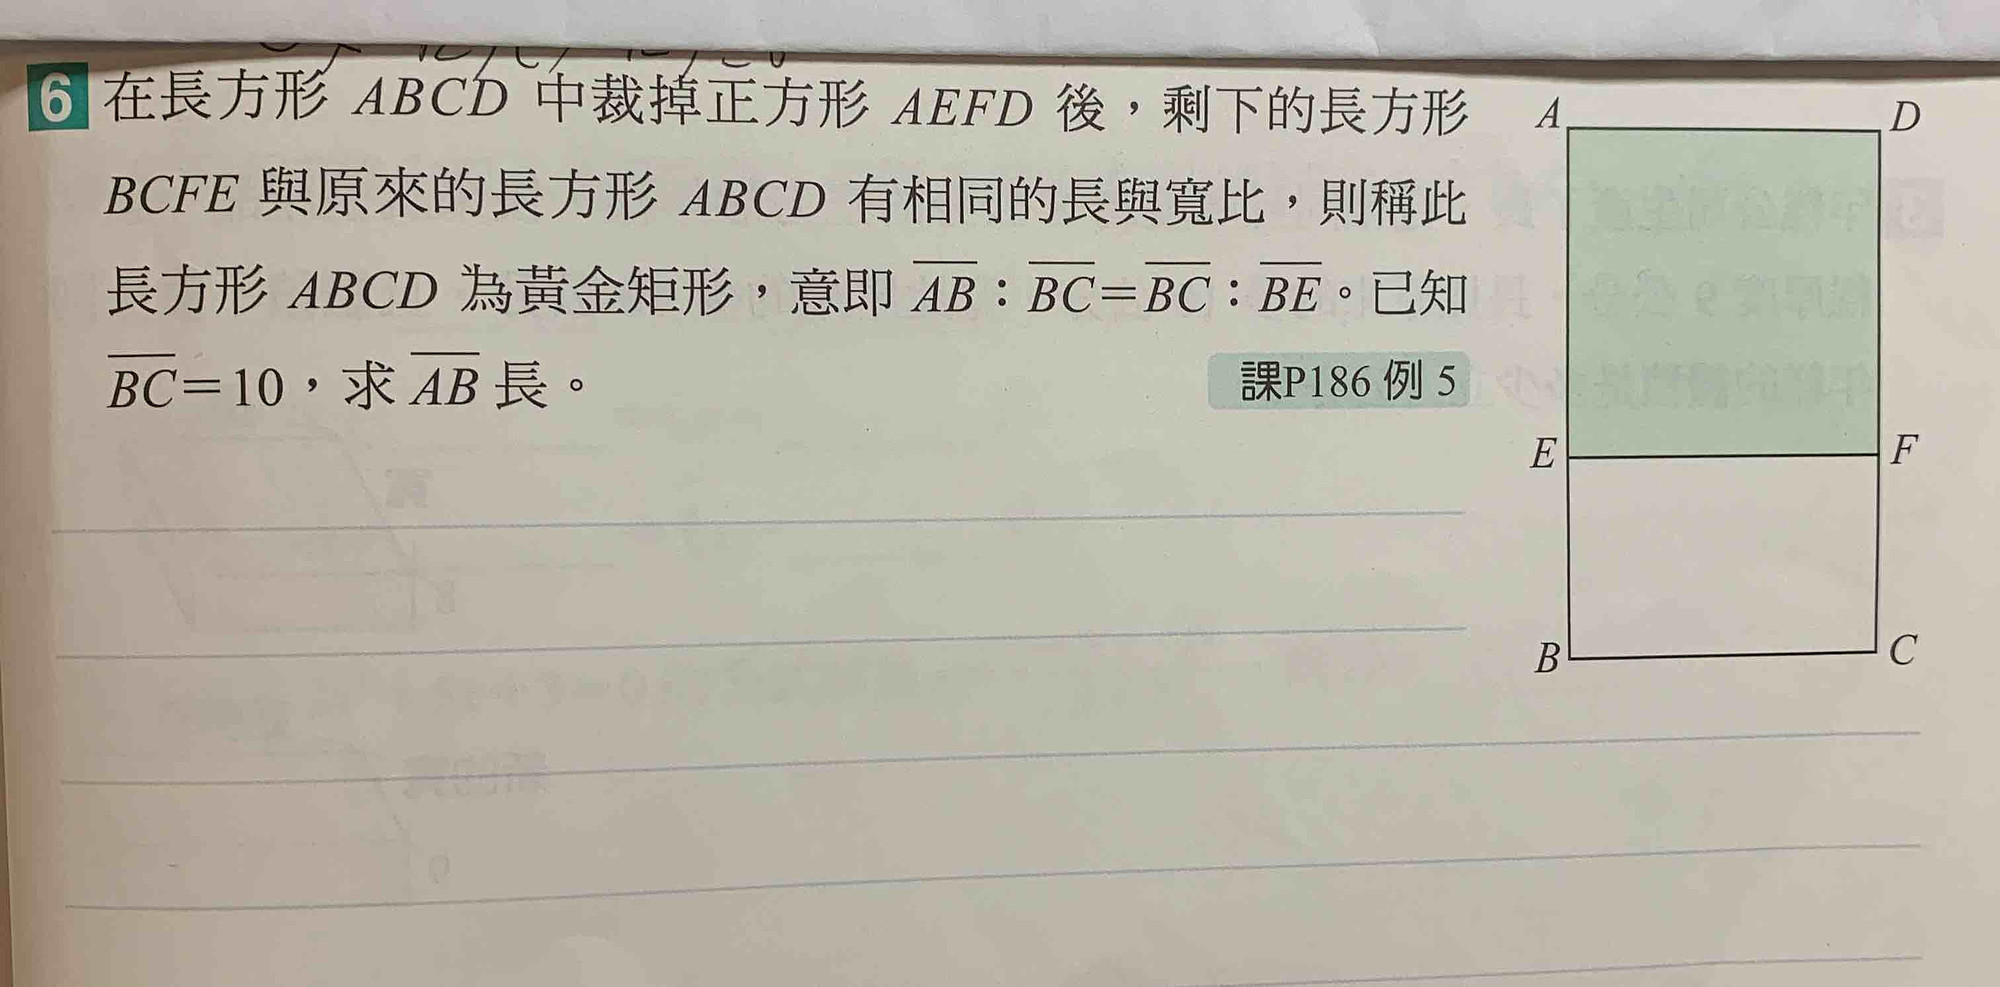 6 在長方形 ABCD 中裁掉正方形 AEFD 後，剩下的長方形
BCFE 與原來的長方形 ABCD 有相同的長與寬比，則稱此
長方形 ABCD 為黃金矩形，意即 AB：BC＝BC：BE。已知
BC＝10，求 AB 長。
課P186 例 5
A
D
E
F
B
C